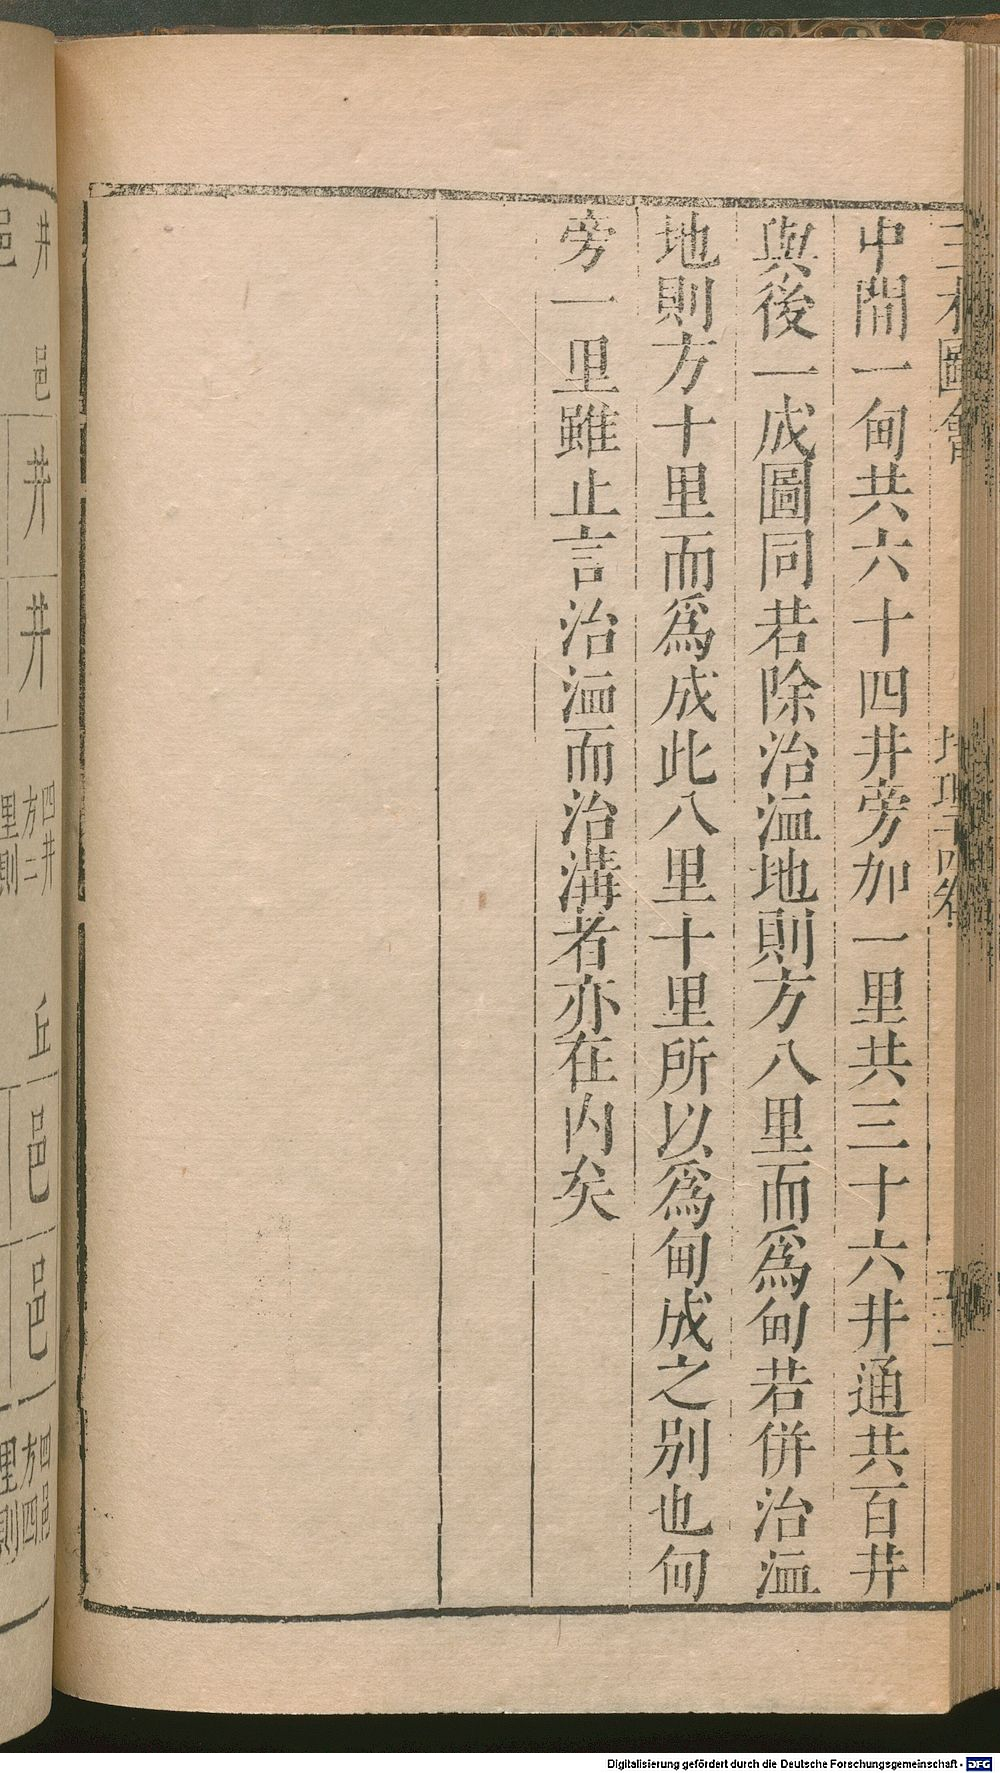 三才圖會
中間一甸共六十四井旁加一里共三十六井通共百井
與後一成圖同若除治洫地則方八里而爲甸若併治洫
地則方十里而爲成此八里十里所以爲甸成之別也何
旁一里雖止言治洫而治溝者亦在内矣
井
邑
邑
井
井
四井
方二
里則
丘
邑
邑
四邑
方四
里則
Digitalisierung gefördert durch die Deutsche Forschungsgemeinschaft - DFG